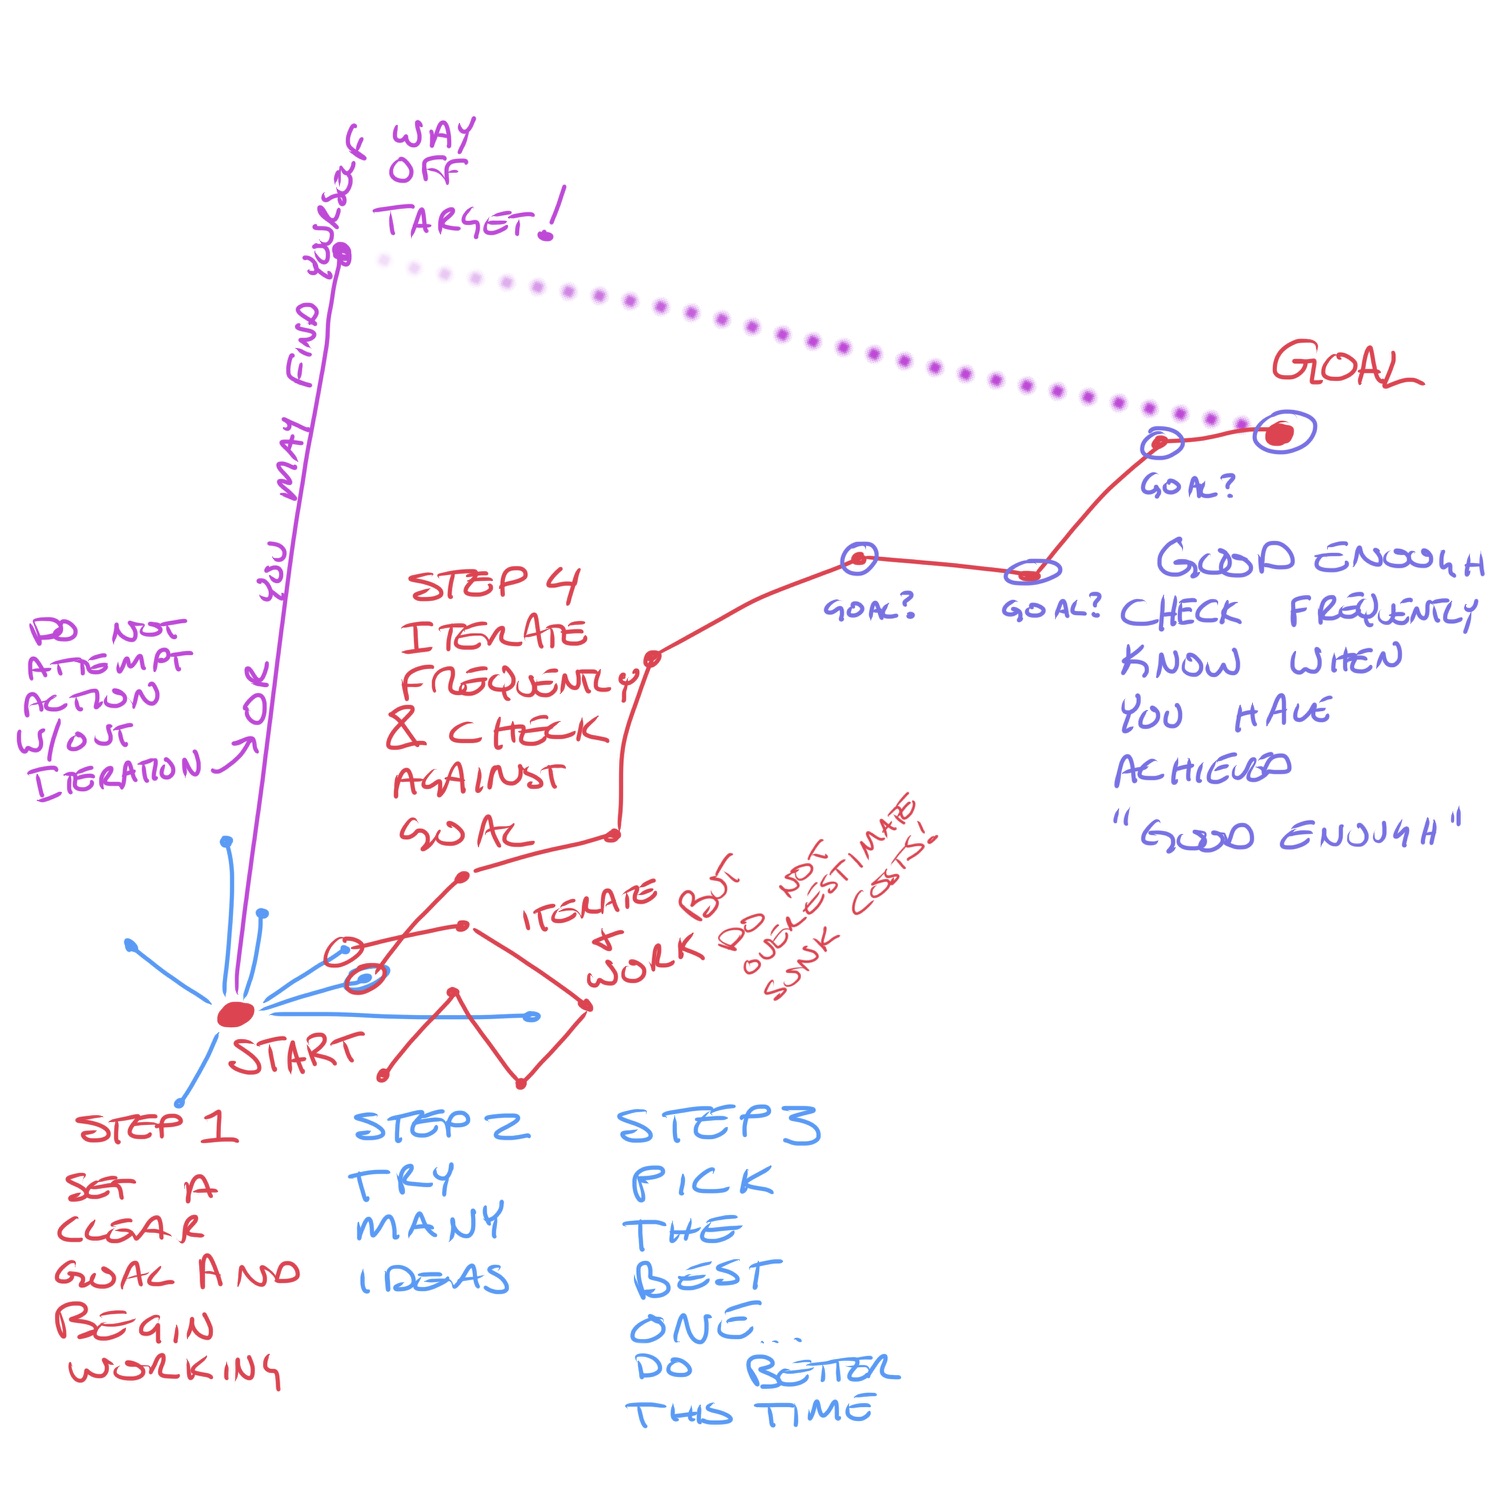 WAY
OFF
TARGET!
OR YOU MAY FIND YOURSELF
GOAL
GOAL?
GOAL?
GOAL?
GOOD ENOUGH
CHECK FREQUENTLY
KNOW WHEN
YOU HAVE
ACHIEVED
"GOOD ENOUGH"
DO NOT
ATTEMPT
ACTION
W/OUT
ITERATION
STEP 4
ITERATE
FREQUENTLY
& CHECK
AGAINST
GOAL
ITERATE
&
WORK BUT
DO NOT
OVERESTIMATE
SUNK COSTS!
START
STEP 1
SET A
CLEAR
GOAL AND
BEGIN
WORKING
STEP 2
TRY
MANY
IDEAS
STEP 3
PICK
THE
BEST
ONE...
DO BETTER
THIS TIME